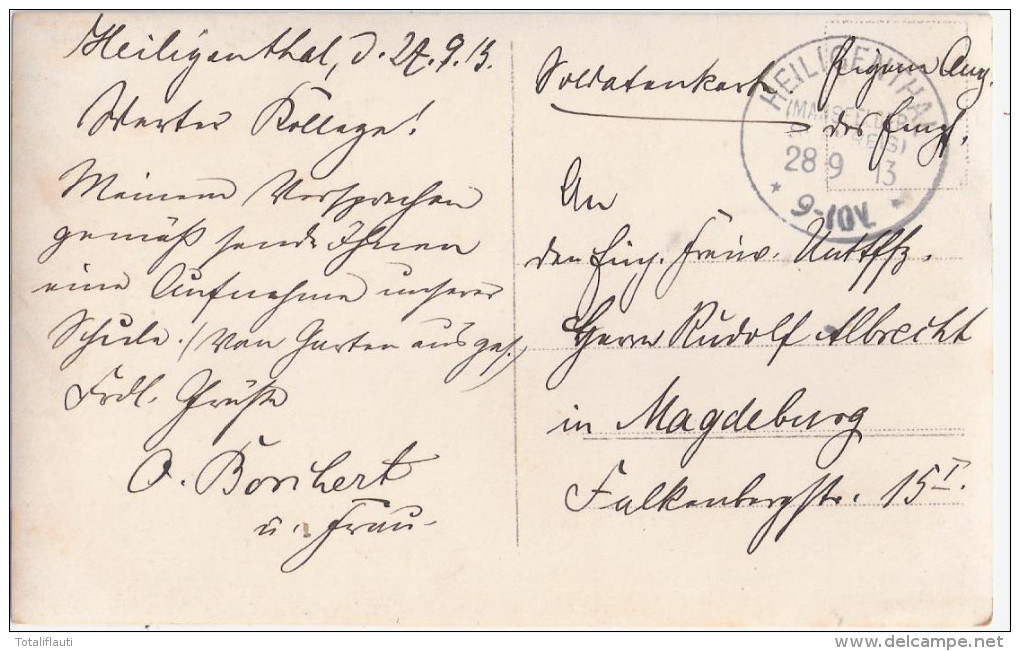 Heiligenthal, d. 27.9.13.
Werter Kollege!
Meinem Versprechen
gemäß sende Ihnen
eine Aufnahme unserer
Schule. (Von Garten aus ges.)
Frdl. Grüße
O. Borchert
u. Frau.
Soldatenkarte
Eigene Ang.
des Empf.
HEILIGENTHAL
(MANSFELDER
KREIS)
28 9 13
* 9-10V. *
An
den Einj. Freiw. Untffz.
Herrn Rudolf Albrecht
in Magdeburg
Falkenbergstr. 15 I.
Totaliflauti
www.delcampe.net